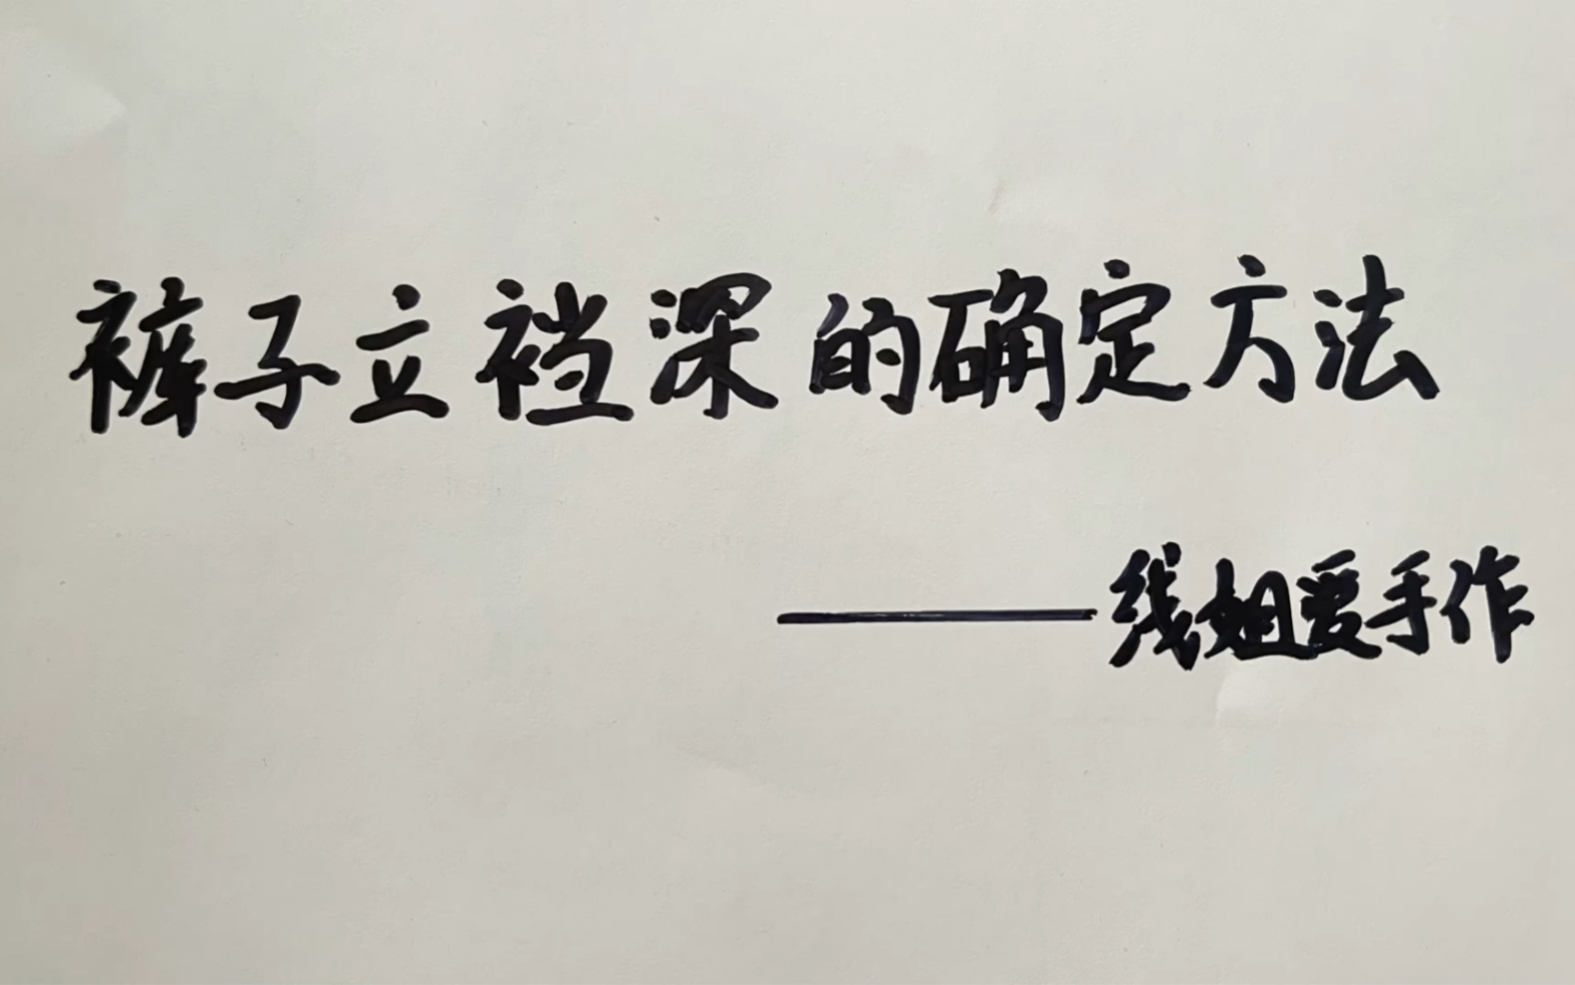 裤子立裆深的确定方法
——线姐爱手作